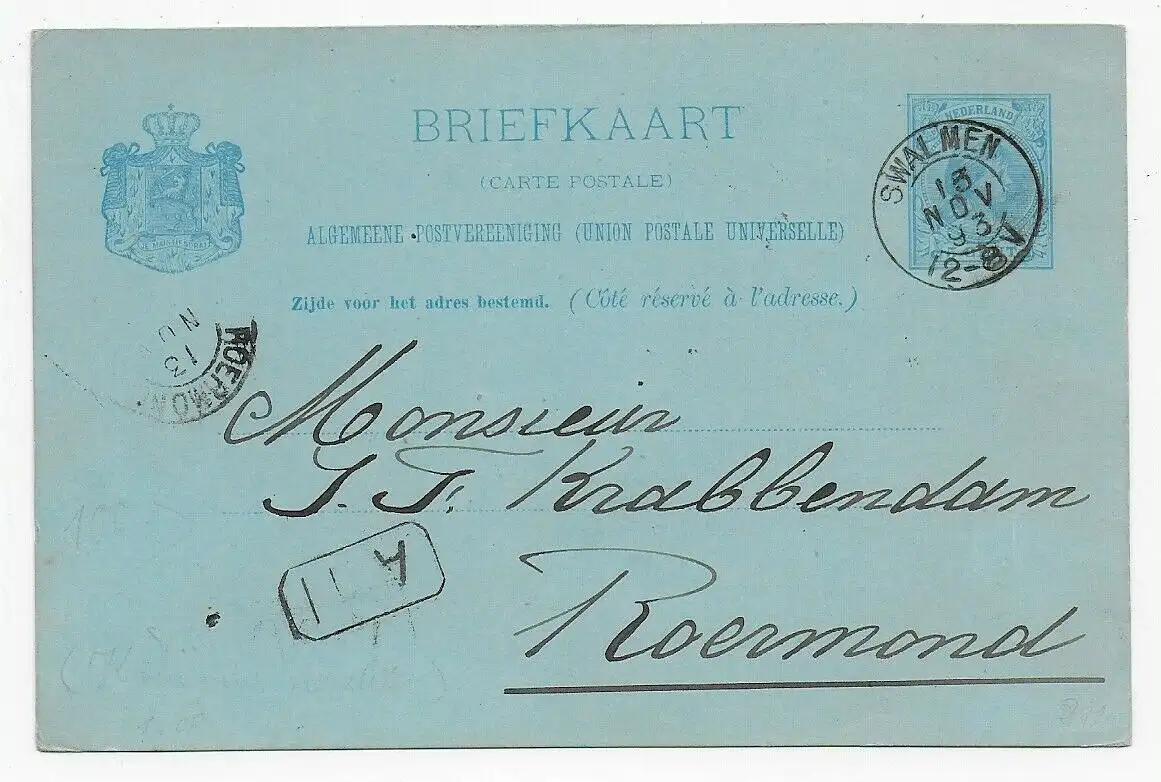 BRIEFKAART
(CARTE POSTALE)
ALGEMEENE POSTVEREENIGING (UNION POSTALE UNIVERSELLE)
Zijde voor het adres bestemd. (Côté réservé à l'adresse.)
JE MAINTIENDRAI
NEDERLAND
SWALMEN
13
NOV
93
12-8V
ROERMON
13
NOV
Monsieur
J. F. Krabbendam
Roermond
A